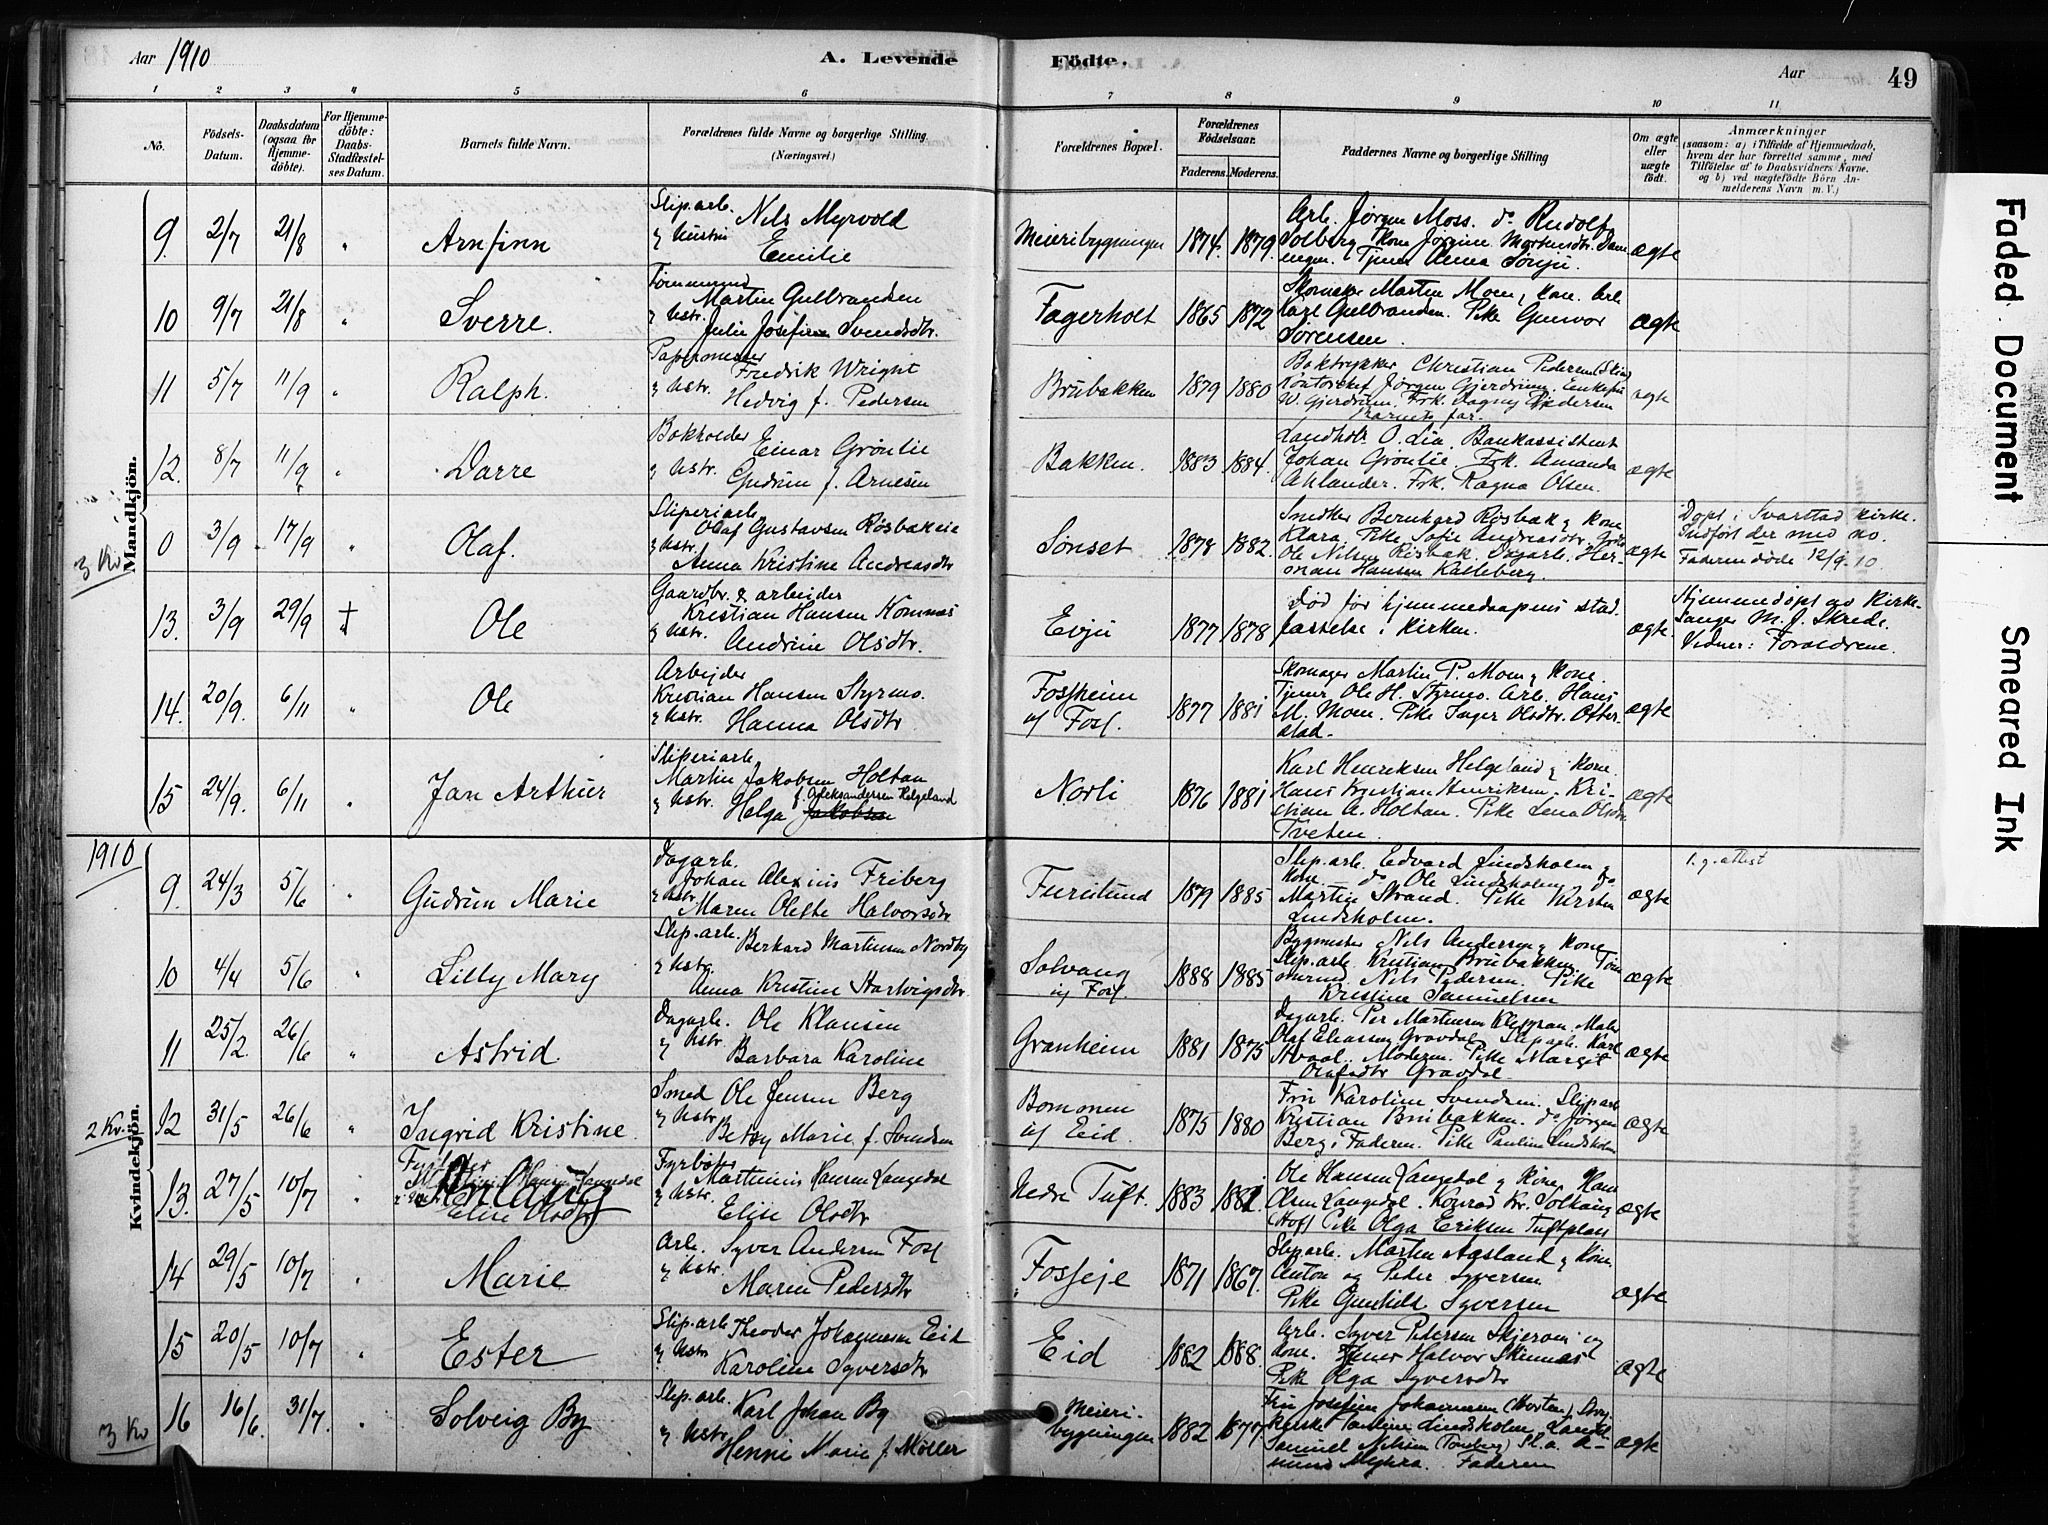 Aar 1910
A. Levende
Födte.
Aar
49
1 2 3 4 5 6 7 8 9 10 11
No.
Födsels-Datum.
Daabsdatum (ogsaa for Hjemmedöbte).
For Hjemmedöbte: Daabs-Stadfæstelses Datum.
Barnets fulde Navn.
Forældrenes fulde Navne og borgerlige Stilling.
(Næringsvei.)
Forældrenes Bopæl.
Forældrenes Födselsaar.
Faderens. Moderens.
Faddernes Navne og borgerlige Stilling
Om ægte eller uægte födt.
Anmærkninger
(saasom: a) i Tilfælde af Hjemmedaab, hvem der har forrettet samme, med Tilföielse af to Daabsvidners Navne. og b) ved uægtefödte Börn Anmelderens Navn m. V.)
Mandkjön.
3 Kv
9. 2/7 21/8 " Arnfinn
Slip.arb. Nils Myrvold
& Hustru Emilie
Meieribygningen 1874. 1879.
Arb. Jørgen Moss. do Rudolf
Solberg, Kone Jørgine Martinsdtr.
Tjener Anna Sønju.
ægte
10 9/7 21/8 " Sverre.
Tømmermd
Martin Gulbrandsen
& Hstr. Julie Josefine Svendsdtr.
Fagerholt 1865 1872
Martin Moen & kone. Arb.
Karl Gulbrandsen. Pike Gunvor
Sørensen.
ægte
11 5/7 11/9 " Ralph.
Papirmester
Fredrik Wright
& Hstr. Hedvig f. Pedersen
Brubakken 1879 1880
Boktrykker Christian Pedersen (Skien)
Kontorchef Jørgen Gjerdrum, Enkefru
W. Gjerdrum. Frk. Dagny Pedersen
Barnets far.
ægte
12. 8/7 11/9 " Darre
Bokholder
Einar Grønlie
& Hstr. Gudrun f. Arnesen
Bakken. 1883 1884.
Landhdlr. O. Lia. Bankassistent
Johan Grønlie. Frk. Amanda
Ahlander. Frk. Ragna Olsen.
ægte
0 3/9 17/9 " Olaf.
Sliperiarb.
Olaf Gustavsen Røsbakeie
& Hstr. Anna Kristine Andreasdtr
Sønset 1878 1882.
Snedker Bernhard Røsbak & kone
Klara. Pike Sofie Andreasdtr.
Ole Nilsen Røsbak. Dagarb. Herman Hansen Kalleberg.
ægte
Døpt i Svarstad kirke.
Indført der med no.
Faderen døde 12/9. 10.
13. 3/9 29/9 † Ole
Gaardbr. & arbeider
Kristian Hansen Komnæs
& Hstr. Andrine Olsdtr.
Evju 1877 1878
Død før hjemmedaapens stadfæstelse i kirken.
ægte.
Hjemmedøpt av Kirkesanger M. J. Skrede.
Vidner: Forældrene.
14. 20/9. 6/11 " Ole
Arbejder
Kristian Hansen Styrmo.
& Hstr. Hanna Olsdtr
Fossheim u/ Foss. 1877 1881
Skomager Martin P. Moen & kone.
Tjener Ole H. Styrmo. Arb. Hans
M. Moen. Pike Inger Olsdtr. Otterstad.
ægte
15 24/9. 6/11 " Jan Arthur
Sliperiarb.
Martin Jakobsen Holtan
& Hstr. Helga f. Aleksandersen Helgeland
Norli 1876 1881
Karl Henriksen Helgeland & kone.
Hans Kristian Henriksen. Kristian A. Holtan. Pike Lena Olsdtr
Tveten.
ægte
1910
Kvindekjön.
9. 24/3 5/6 " Gudrun Marie
Dagarb.
Johan Alexius Friberg
& Hstr. Maren Olette Halvorsdtr
Furulund 1879 1885
Slip.arb. Edvard Lindsholm &
kone. do Ole Lindsholm
Martin Strand. Pike Kirsten
Lindsholm.
ægte
10 4/4 5/6 " Lilly Mary
Slip.arb. Berhard Martinsen Nordby
& Hstr. Anna Kristine Hartvigsdtr.
Solvang u/ Foss. 1888 1885
Bygmester Nils Andersen & kone
Slip.arb. Kristian Brubakken,
Nils Pedersen. Pike
Kristine Samuelsen
ægte
11 25/2. 26/6 " Astrid.
Dagarb. Ole Klausen
& Hstr. Barbara Karoline
Granheim 1881 1875
Dagarb. Per Martinsen Kleppan. Maler
Olaf Eliassen Gravdal. Slip.arb. Karl
Hvaal. Moderen. Pike Margit
Olafsdtr Gravdal.
ægte
2 Kv.
12 31/5 26/6 " Ingrid Kristine.
Smed Ole Jensen Berg
& Hstr. Betsy Marie f. Svendsen
Bommen u/ Eid. 1875 1880
Fru Karoline Svendsen. Slip.arb
Kristian Brubakken. do Jørgen
Berg, Faderen. Pike Pauline Lindsholm
ægte
13. 27/5 10/7 " Anlaug
Elise Olsdtr
Fyrbøter
Mathinius Hansen Langedal
& Hstr. Elise Olsdtr
Nedre Tuft. 1883 1881.
Ole Hansen Langedal & kone, Hans
Olsen Langedal. Konrad Kr. Solhaug
(Hof) Pike Olga Eriksen Tuftplass
ægte
14 29/5 10/7 " Marie
Arb. Syver Andersen Foss
& Hstr. Maren Pedersdtr
Fosseje 1871 1867.
Slip.arb. Martin Aasland & kone
Anton og Peder Syversen
Pike Gunhild Syversen
ægte
15 20/5 10/7 " Ester
Slip.arb Theodor Johannesen Eid
& Hstr Karoline Syversdtr
Eid 1882 1888.
Arb. Syver Pedersen Skjerom og
kone. Tjener Halvor Skinnæs
Pike Olga Syversdtr
ægte
3 Kv
16 16/6. 31/7. " Solveig By
Slip.arb. Karl Johan By
& Hstr. Henni Marie f. Møller
Meieribygningen 1882 1877.
Fru Josefine Johannesen (Horten),
Pauline Lindsholm,
Samuel Nilsen (Tønsberg)
Myhra. Faderen
ægte
Faded Document
Smeared Ink